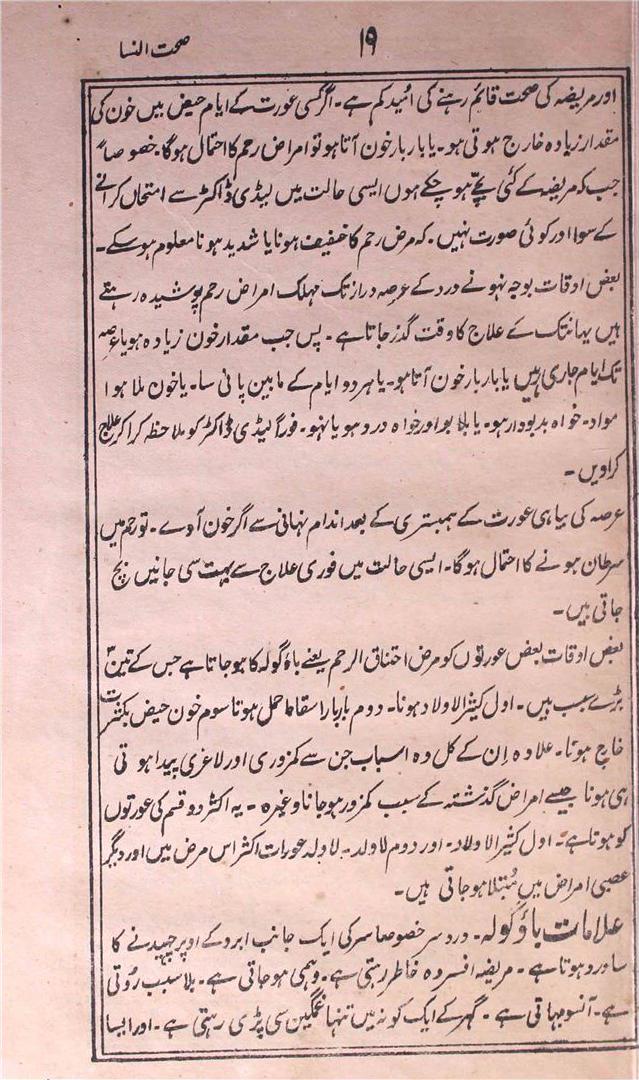 صحت النسا
۱۹
اور مریضہ کی صحت قائم رہنے کی اُمید کم ہے۔ اگر کسی عورت کے ایام حیض میں خون کی
مقدار زیادہ خارج ہوتی ہو۔ یا بار بار خون آتا ہو تو امراض رحم کا احتمال ہوگا۔ خصوصاً
جب کہ مریضہ کے کئی بچّے ہوچکے ہوں ایسی حالت میں لیڈی ڈاکٹر سے امتحان کرانے
کے سوا اور کوئی صورت نہیں۔ کہ مرض رحم کا خفیف ہونا یا شدید ہونا معلوم ہوسکے۔
بعض اوقات بوجہ نہونے درد کے عرصہ دراز تک مہلک امراض رحم پوشیدہ رہتے
ہیں یہانتک کے علاج کا وقت گذر جاتا ہے۔ پس جب مقدار خون زیادہ ہو یا عرصہ
تک ایام جاری رہیں یا بار بار خون آتا ہو۔ یا ہر دو ایام کے مابین پانی سا۔ یا خون ملا ہوا
مواد۔ خواہ بدبودار ہو۔ یا بلا بو اور خواہ درد ہو یا نہو۔ فوراً لیڈی ڈاکٹر کو ملاحظہ کرا کر علاج
کراویں۔
عرصہ کی بیاہی عورت کے ہمبستری کے بعد اندام نہانی سے اگر خون آوے۔ تو رحم میں
سرطان ہونے کا احتمال ہوگا۔ ایسی حالت میں فوری علاج سے بہت سی جانیں بچ
جاتی ہیں۔
بعض اوقات بعض عورتوں کو مرض اختناق الرحم یعنے باؤگولہ کا ہوجاتا ہے جس کے تین
بڑے سبب ہیں۔ اول کثیر الاولاد ہونا۔ دوم بار بار اسقاط حمل ہونا سوم خون حیض بکثرت
خارج ہونا۔ علاوہ اِن کے کل وہ اسباب جن سے کمزوری اور لاغری پیدا ہوتی
ہی ہونا جیسے امراض گذشتہ کے سبب کمزور ہوجانا وغیرہ۔ یہ اکثر دو قسم کی عورتوں
کو ہوتا ہے۔ اول کثیر الاولاد۔ اور دوم لاولد۔ لاولد عورات اکثر اس مرض میں اور دیگر
عصبی امراض میں مُبتلا ہوجاتی ہیں۔
علامات باؤگولہ۔ درد سر خصوصاً سر کی ایک جانب ابرد کے اوپر چھیدنے کا
سا درد ہوتا ہے۔ مریضہ افسردہ خاطر رہتی ہے۔ وہمی ہوجاتی ہے۔ بلا سبب رُوتی
ہے۔ آنسو بہاتی ہے۔ گہر کے ایک کونہ میں تنہا غمگین سی پڑی رہتی ہے۔ اور ایسا